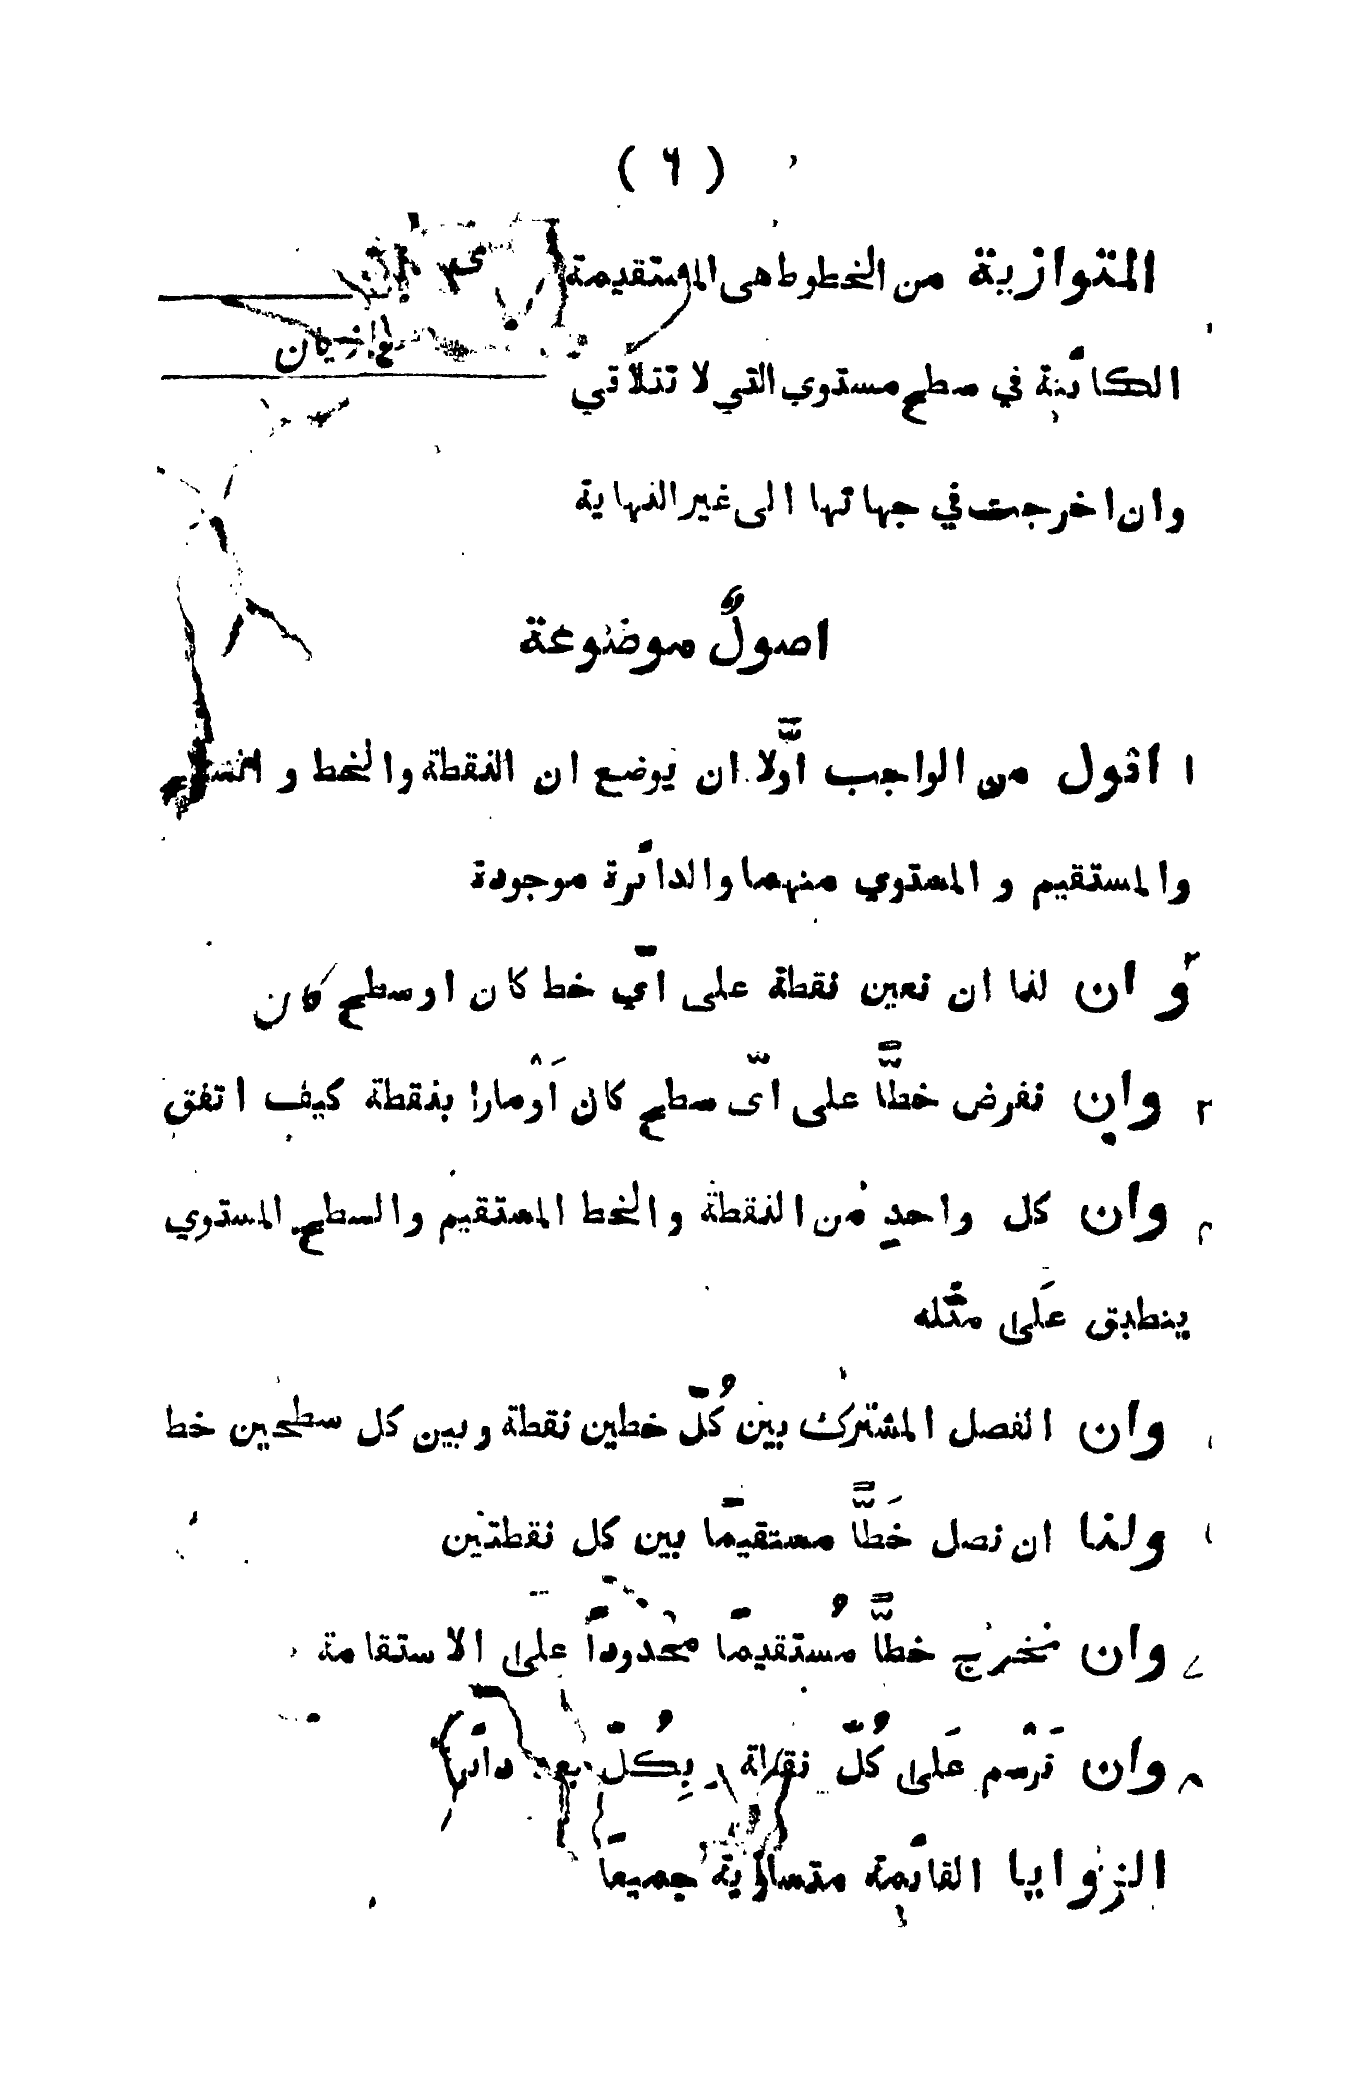 ( ٦ )
المتوازية من الخطوط هى المستقيمة
متوازيان
الكائنة في سطح مستوي التي لا تتلاقي
وان اخرجت في جهاتها الى غير النهاية
اصولٌ موضوعة
١ اقول من الواجب اوّلا ان يوضع ان النقطة والخط و السطح
والمستقيم و المستوي منهما والدائرة موجودة
٢ و ان لنا ان نعين نقطة على ايّ خط كان او سطح كان
٣ وان نفرض خطًّا على ايّ سطح كان اَوْ مارا بنقطة كيف اتفق
وان كل واحدٍ من النقطة والخط المستقيم والسطح المستوي
ينطبق عَلى مثله
وان الفصل المشترك بين كُلّ خطين نقطة وبين كل سطحين خط
ولنا ان نصل خَطًّا مستقيمًا بين كل نقطتين
وان نخرج خطًّا مُستقيمًا محدودًا على الاستقامة
٨ وان نَرْسم عَلى كُلّ نقطة بِكُلّ بعد دائرة
الزوايا القائمة متساوية جميعًا